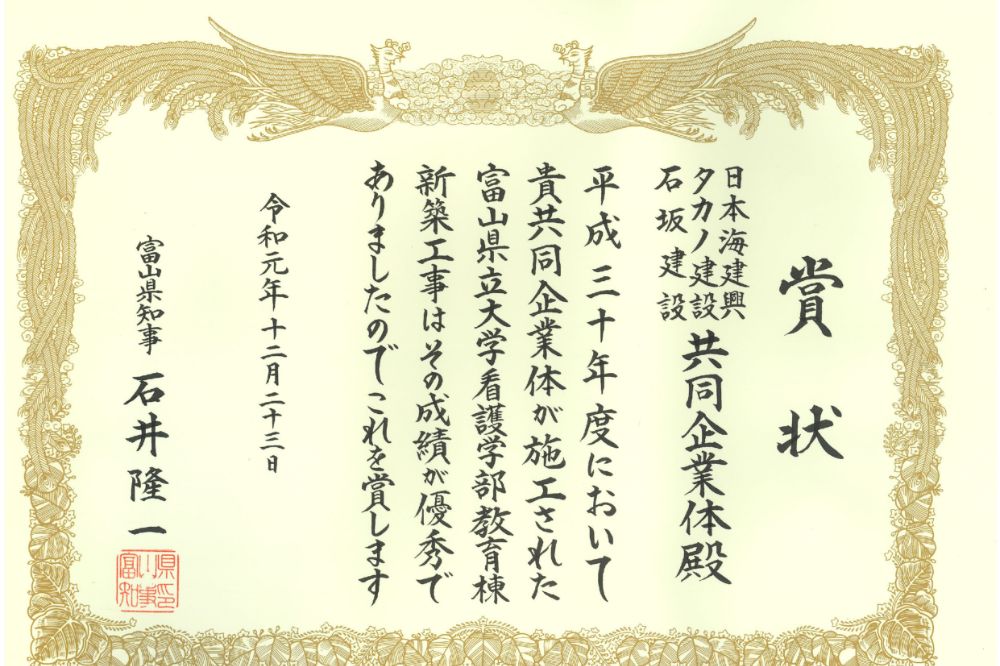 賞状
日本海建興
タカノ建設
石坂建設
共同企業体殿
平成三十年度において
貴共同企業体が施工された
富山県立大学看護学部教育棟
新築工事はその成績が優秀で
ありましたのでこれを賞します
令和元年十二月二十三日
富山県知事 石井隆一
富山県知事印